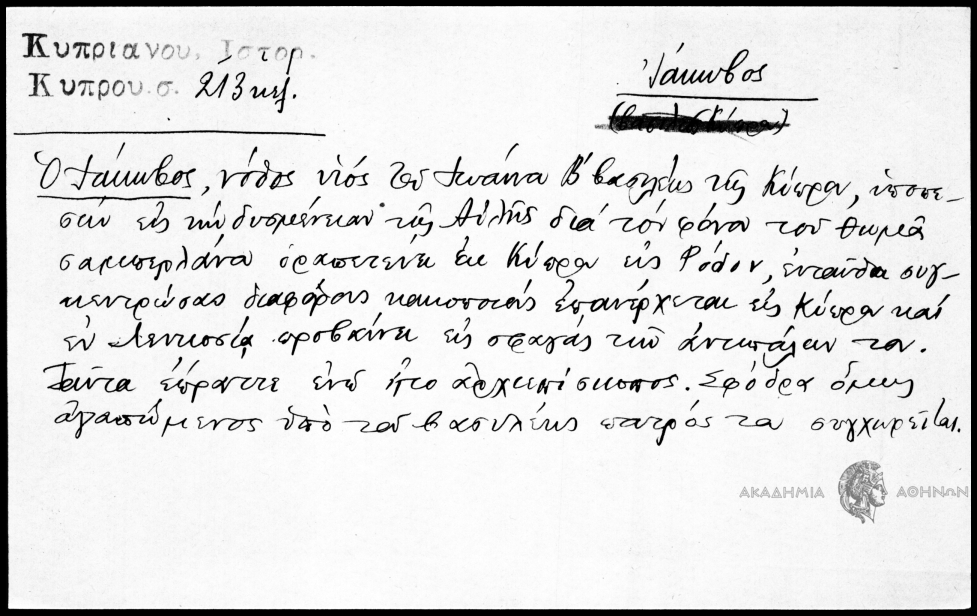 Κυπριανου, Ιστορ.
Κυπρου σ. 213 κεξ.
Ἰάκωβος
(βασιλεὺς Κύπρου)
Ὁ Ἰάκωβος, νόθος υἱός τοῦ Ἰωάννου Β' βασιλέως τῆς Κύπρου, ὑποπε-
σών εἰς τήν δυσμένειαν τῆς Αὐλῆς διά τόν φόνον τοῦ Θωμᾶ
σαμπερλάνου δραπετεύει ἐκ Κύπρου εἰς Ρόδον, ἐνταῦθα συγ-
κεντρώσας διαφόρους κακοποιούς ἐπανέρχεται εἰς Κύπρον καί
ἐν Λευκοσίᾳ προβαίνει εἰς σφαγάς τῶν ἀντιπάλων του.
Ταῦτα ἔπραττε ἐνῶ ἦτο ἀρχιεπίσκοπος. Σφόδρα ὅμως
ἀγαπώμενος ὑπό τοῦ βασιλέως πατρός του συγχωρεῖται.
ΑΚΑΔΗΜΙΑ ΑΘΗΝΩΝ